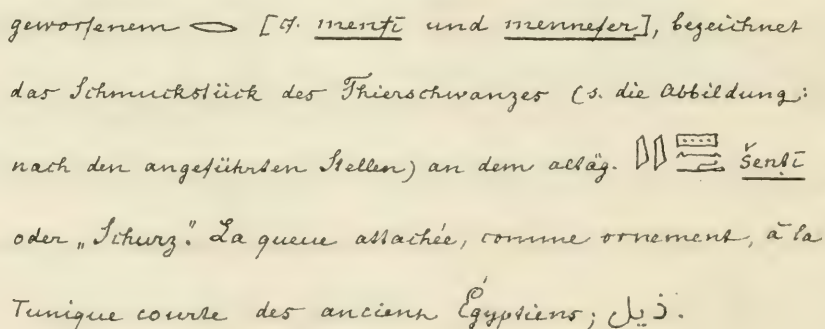 geworfenem 𓂋 [cf. mentī und mennefer], bezeichnet
das Schmuckstück des Thierschwanzes (s. die Abbildung:
nach den angeführten Stellen) an dem altäg. šentī
oder „Schurz“. La queue attachée, comme ornement, à la
Tunique courte des anciens Égyptiens; ذيل.